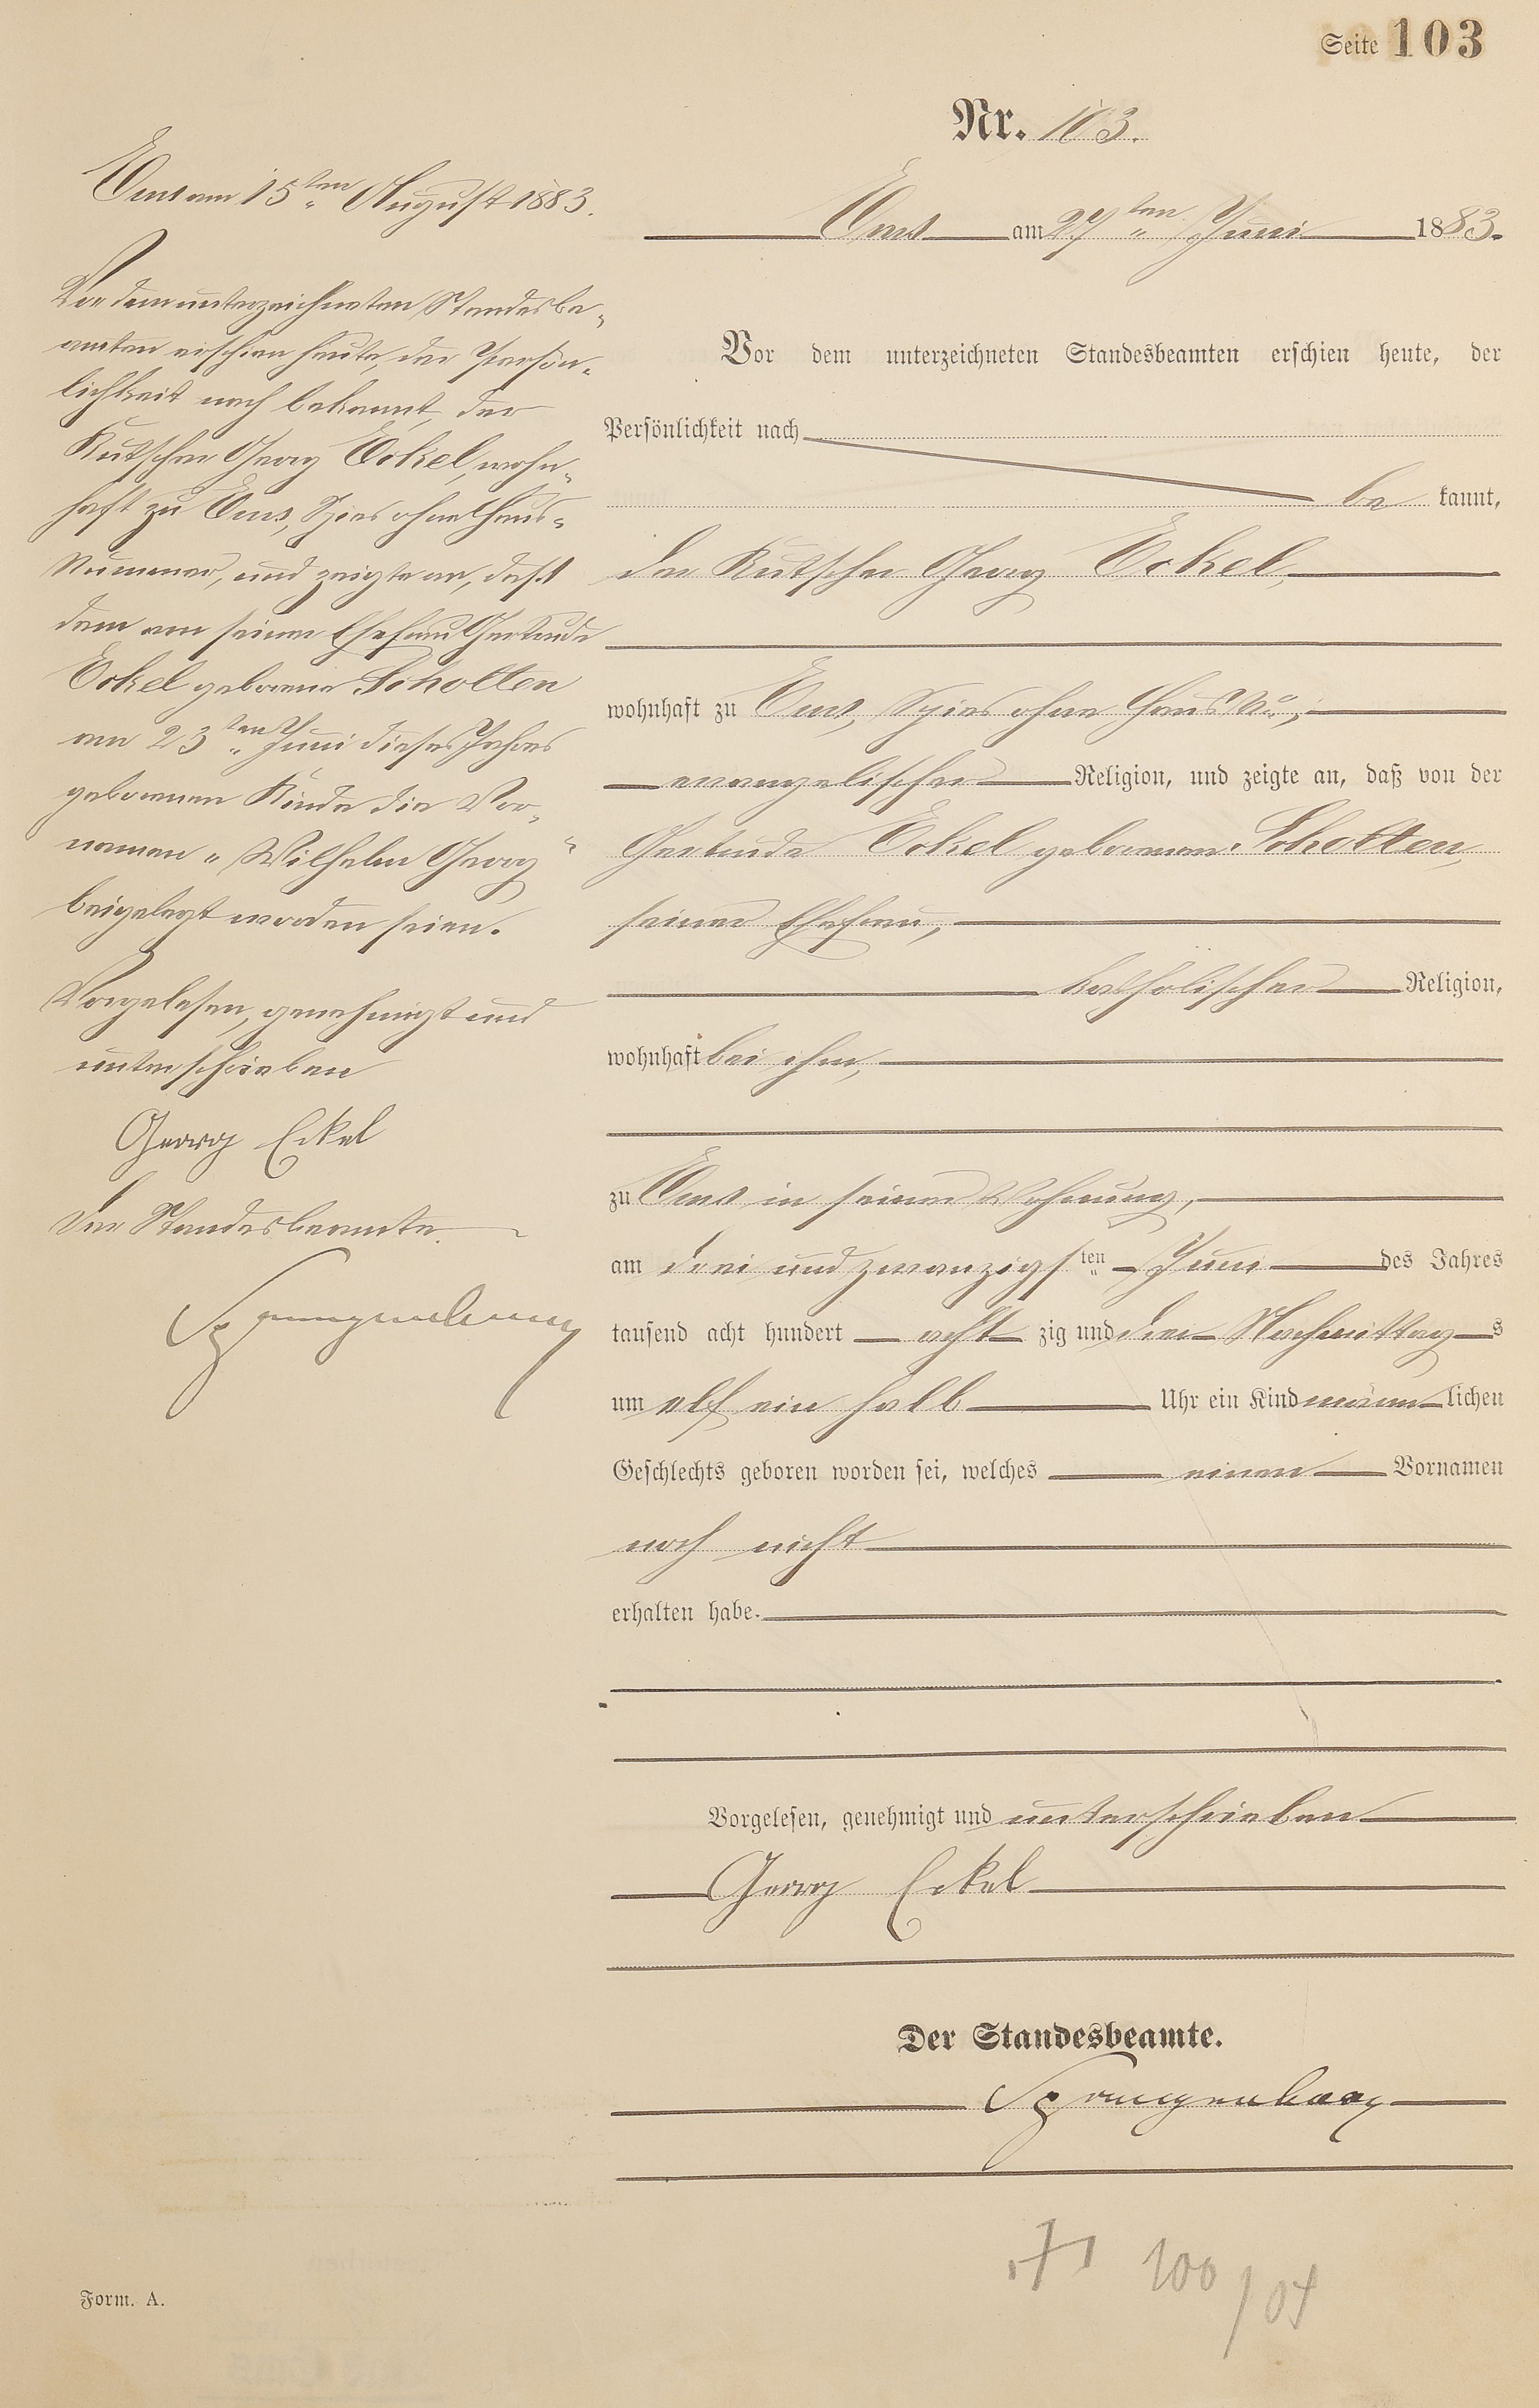 Seite 103
Nr. 103.
Ems am 27ten Juni 1883.
Vor dem unterzeichneten Standesbeamten erschien heute, der
Persönlichkeit nach
be kannt,
der Kutscher Georg Eckel,
wohnhaft zu Ems, Spies ohne Haus No,
evangelischer Religion, und zeigte an, daß von der
Gertrude Eckel geborenen Scholten,
seiner Ehefrau,
katholischer Religion,
wohnhaft bei ihm,
zu Ems in seiner Wohnung,
am drei und zwanzigsten Juni des Jahres
tausend acht hundert acht zig und drei Nachmittags
um elf ein halb Uhr ein Kind männlichen
Geschlechts geboren worden sei, welches einen Vornamen
noch nicht
erhalten habe.
Vorgelesen, genehmigt und unterschrieben
Georg Eckel
Der Standesbeamte.
Spangenberg
Ems am 15ten August 1883.
Vor dem unterzeichneten Standesbe-
amten erschien heute, der Persön-
lichkeit nach bekannt, der
Kutscher Georg Eckel, wohn-
haft zu Ems, Spies ohne Haus-
Nummer, und zeigte an, daß
dem von seiner Ehefrau Gertrude
Eckel geborene Scholten
am 23ten Juni dieses Jahres
geborenen Kinde die Vor-
namen „Wilhelm Georg"
beigelegt worden seien.
Vorgelesen, genehmigt und
unterschrieben
Georg Eckel
Der Standesbeamte.
Spangenberg
100/04
Form. A.